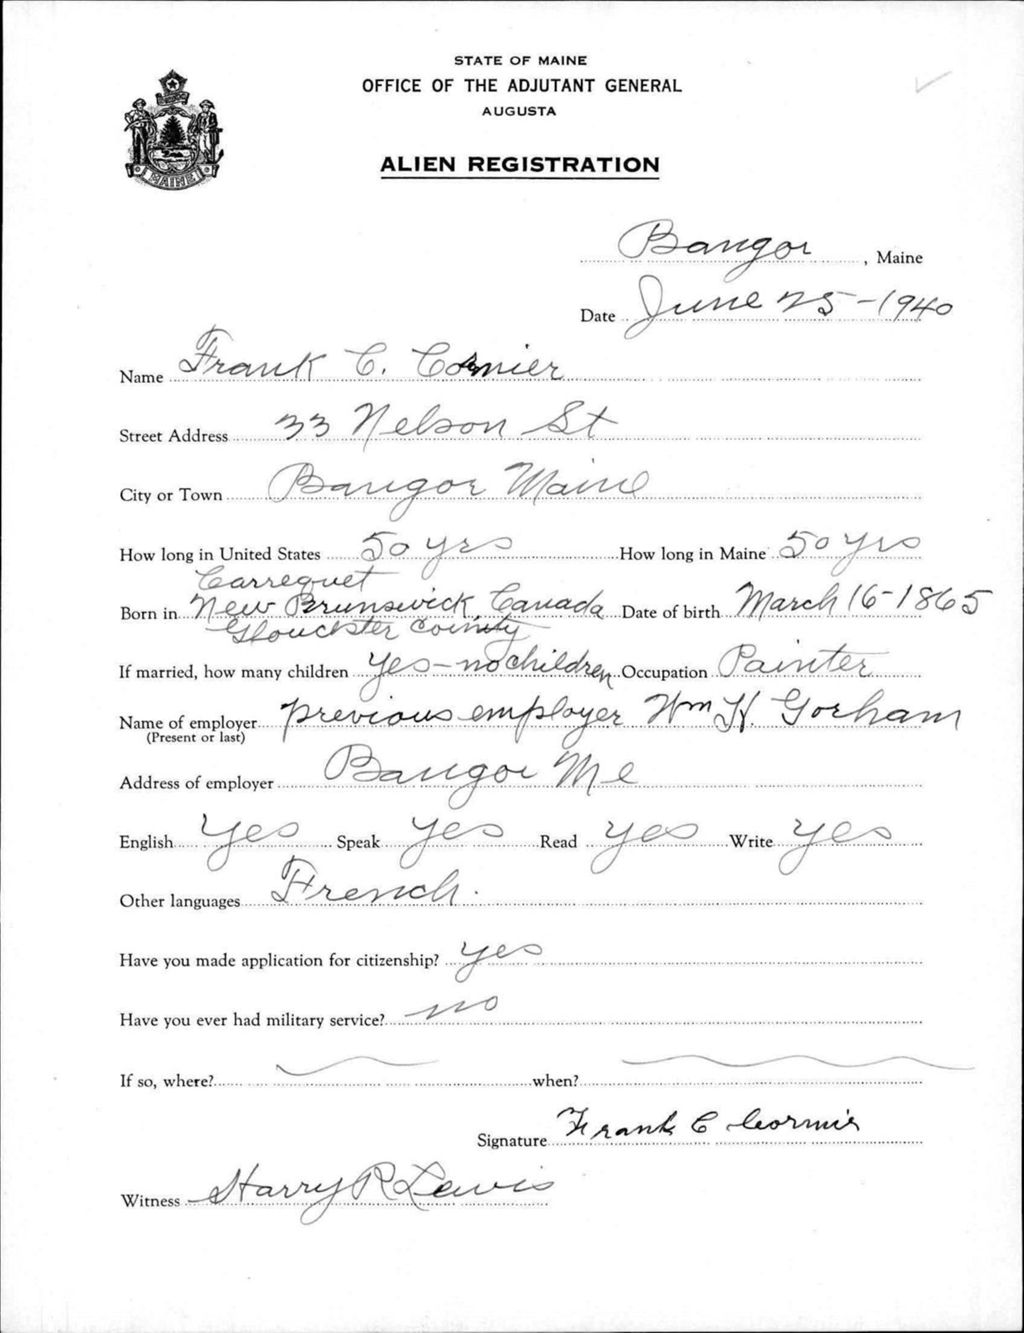 STATE OF MAINE
OFFICE OF THE ADJUTANT GENERAL
AUGUSTA
ALIEN REGISTRATION
MAINE
Bangor, Maine
Date June 25-1940
Name Frank C. Cormier
Street Address 33 Nelson St
City or Town Bangor Maine
How long in United States 50 yrs How long in Maine 50 yrs
Carrequet
Born in New Brunswick, Canada Date of birth March 16-1865
Glouckster County
If married, how many children yes-no children Occupation Painter
Name of employer previous employer Wm H Gorham
(Present or last)
Address of employer Bangor Me
English Yes Speak yes Read yes Write yes
Other languages French.
Have you made application for citizenship? yes
Have you ever had military service? no
If so, where? when?
Signature Frank C Cormier
Witness Harry R Lewis